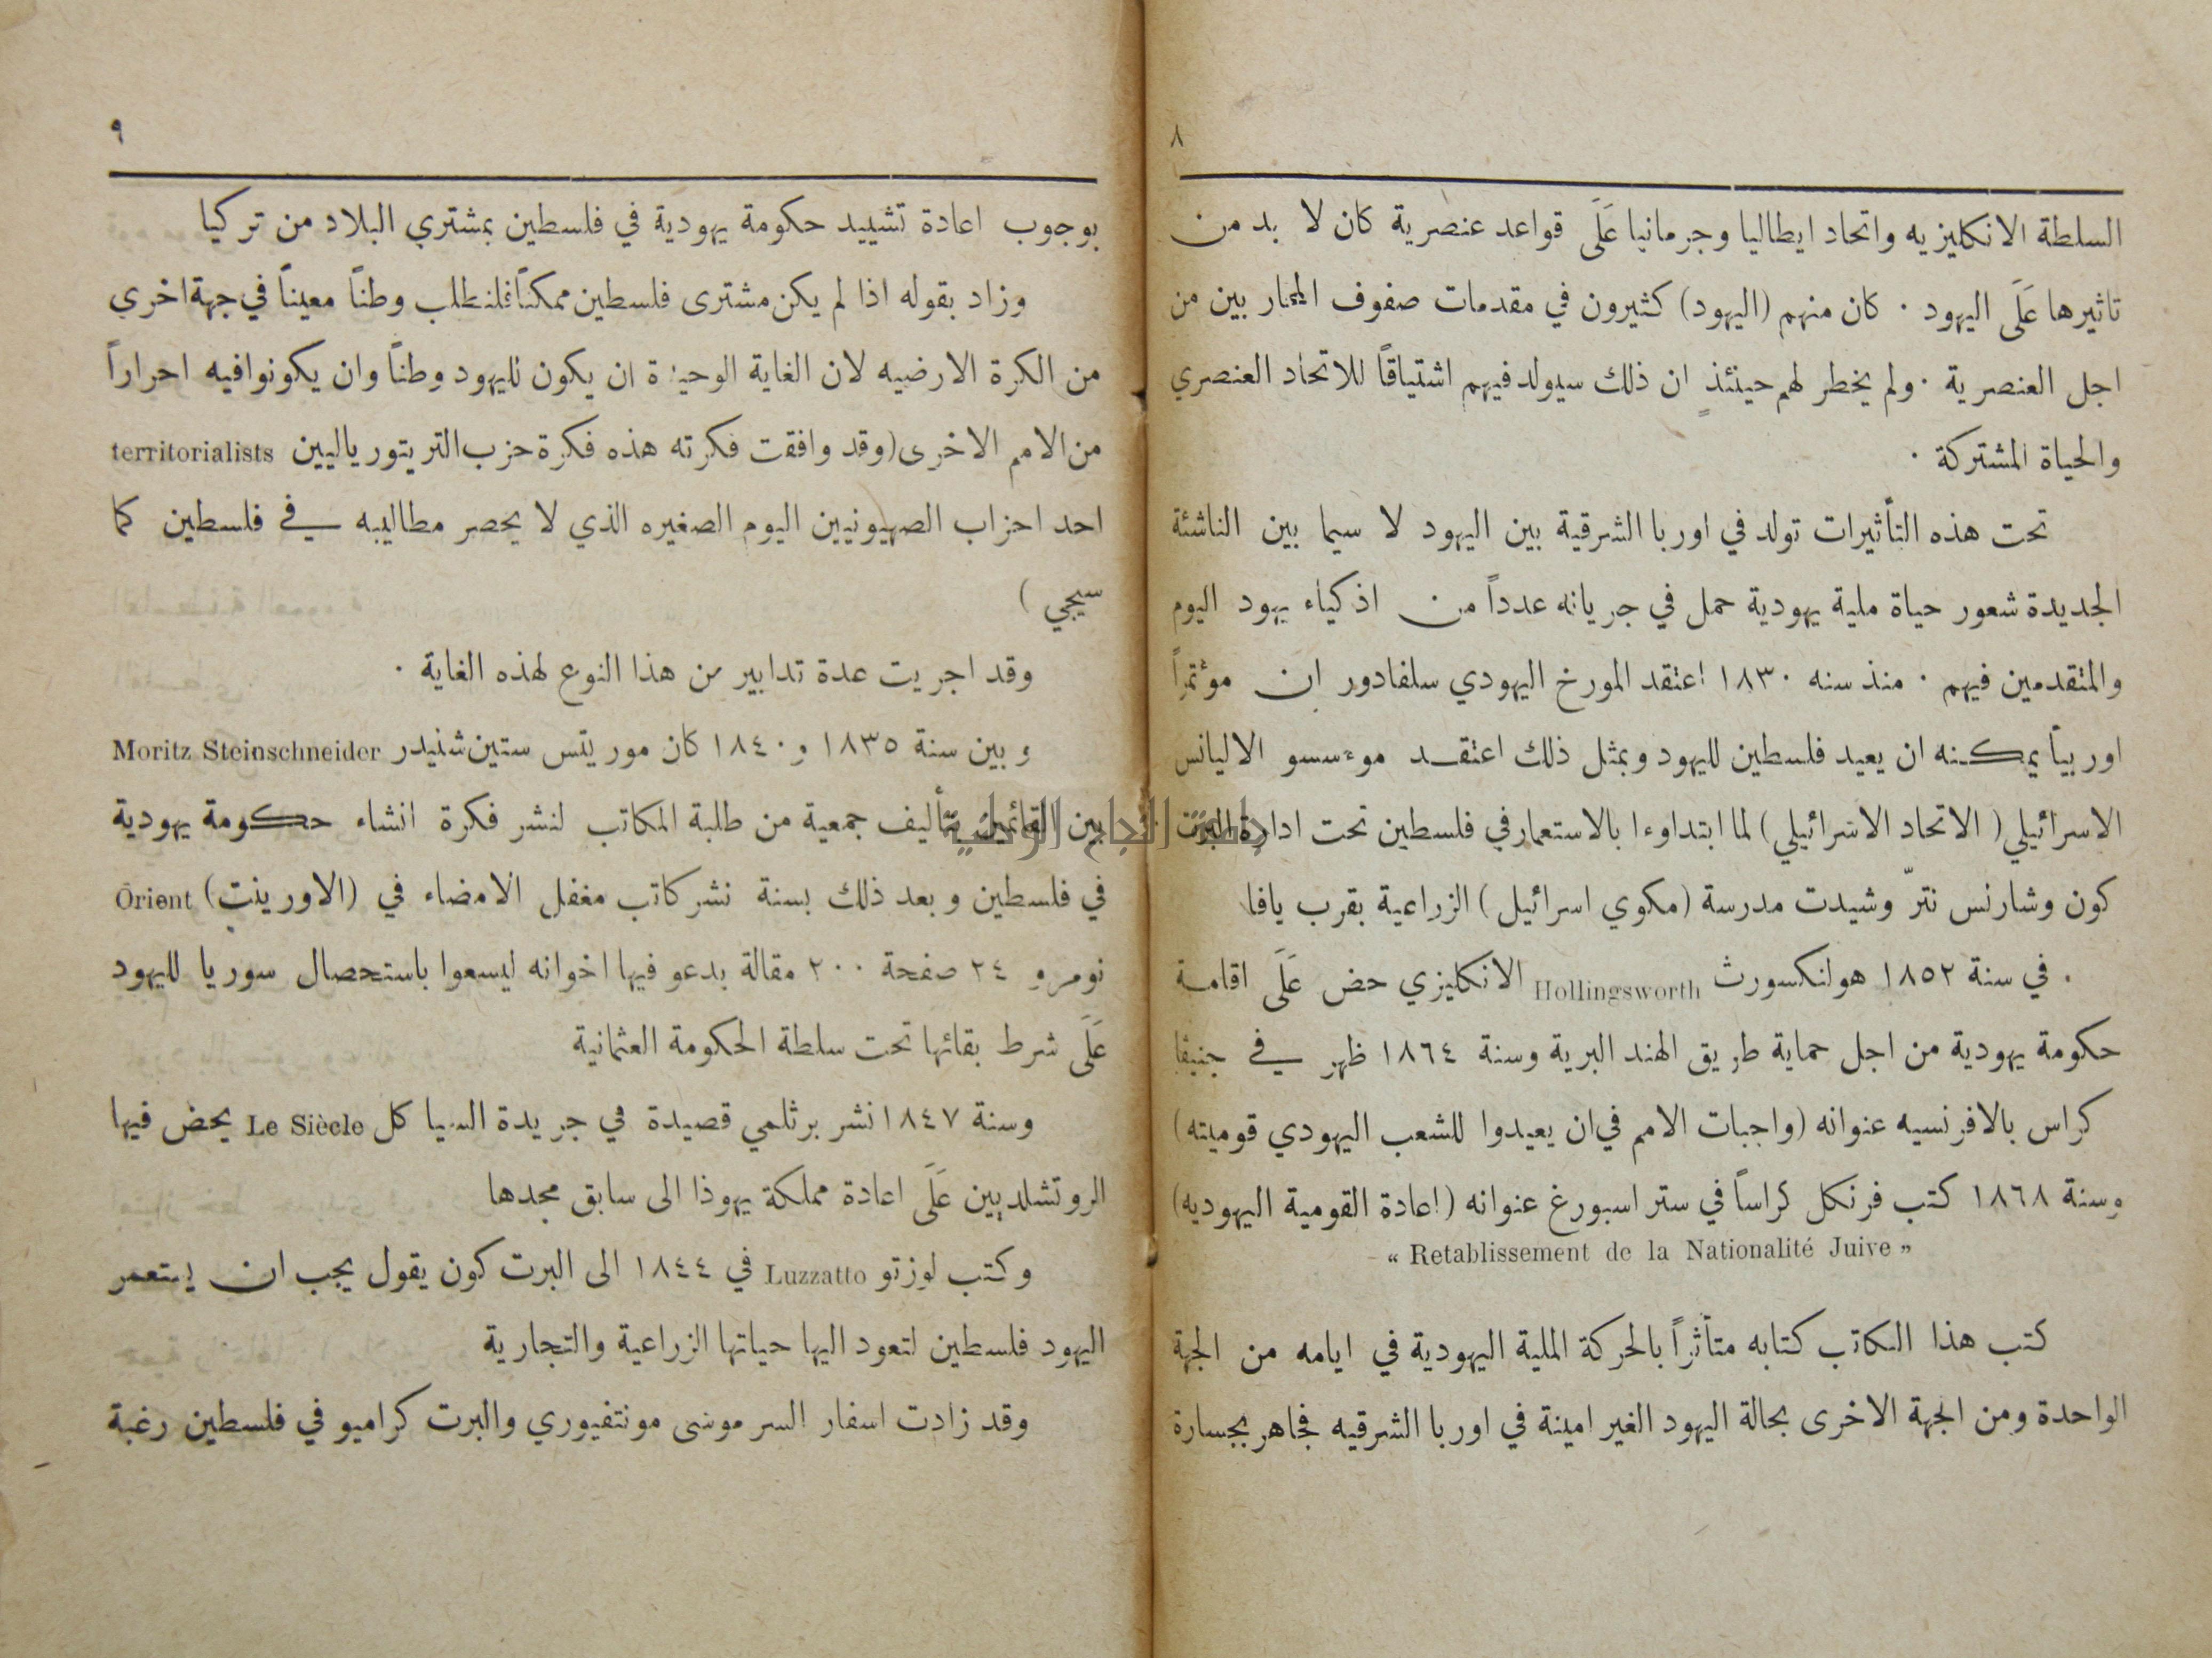 ٨
السلطة الانكليزيه واتحاد ايطاليا وجرمانيا عَلَى قواعد عنصرية كان لا بد من
تاثيرها عَلَى اليهود . كان منهم (اليهود) كثيرون في مقدمات صفوف المحاربين من
اجل العنصرية . ولم يخطر لهم حينئذٍ ان ذلك سيولد فيهم اشتياقاً للاتحاد العنصري
والحياة المشتركة .
تحت هذه التأثيرات تولد في اوربا الشرقية بين اليهود لا سيما بين الناشئة
الجديدة شعور حياة ملية يهودية حمل في جريانه عدداً من اذكياء يهود اليوم
والمتقدمين فيهم . منذ سنه ١٨٣٠ اعتقد المورخ اليهودي سلفادور ان مؤتمراً
اوربياً يمكنه ان يعيد فلسطين لليهود وبمثل ذلك اعتقد موءسسو الاليانس
الاسرائيلي ( الاتحاد الاسرائيلي ) لما ابتداوءا بالاستعمار في فلسطين تحت ادارة البرت
كون وشارنس نترّ وشيدت مدرسة ( مكوي اسرائيل ) الزراعية بقرب يافا
. في سنة ١٨٥٢ هولنكسورث Hollingsworth الانكليزي حض عَلَى اقامة
حكومة يهودية من اجل حماية طريق الهند البرية وسنة ١٨٦٤ ظهر في جنيفا
كراس بالافرنسيه عنوانه (واجبات الامم في ان يعيدوا للشعب اليهودي قوميته)
وسنة ١٨٦٨ كتب فرنكل كراساً في ستراسبورغ عنوانه (اعادة القومية اليهوديه)
“ Retablissement de la Nationalité Juive ”
كتب هذا الكاتب كتابه متأثراً بالحركة الملية اليهودية في ايامه من الجهة
الواحدة ومن الجهة الاخرى بحالة اليهود الغير امينة في اوربا الشرقيه فجاهر بجسارة
٩
بوجوب اعادة تشييد حكومة يهودية في فلسطين بمشتري البلاد من تركيا
وزاد بقوله اذا لم يكن مشترى فلسطين ممكناً فلنطلب وطناً معيناً في جهة اخرى
من الكرة الارضيه لان الغاية الوحيدة ان يكون لليهود وطناً وان يكونوا فيه احراراً
من الامم الاخرى (وقد وافقت فكرته هذه فكرة حزب التريتورياليين territorialists
احد احزاب الصهيونيين اليوم الصغيره الذي لا يحصر مطاليبه في فلسطين كما
سيجي )
وقد اجريت عدة تدابير من هذا النوع لهذه الغاية .
وبين سنة ١٨٣٥ و ١٨٤٠ كان موريتس ستين شنيدر Moritz Steinschneider
بين القائمين بتأليف جمعية من طلبة المكاتب لنشر فكرة انشاء حكومة يهودية
في فلسطين وبعد ذلك بسنة نشر كاتب مغفل الامضاء في (الاورينت) Orient
نومرو ٢٤ صفحة ٢٠٠ مقالة يدعو فيها اخوانه ليسعوا باستحصال سوريا لليهود
عَلَى شرط بقائها تحت سلطة الحكومة العثمانية
وسنة ١٨٤٧ نشر برثلمي قصيدة في جريدة السياكل Le Siècle يحض فيها
الروتشلديين عَلَى اعادة مملكة يهوذا الى سابق مجدها
وكتب لوزتو Luzzatto في ١٨٤٤ الى البرت كون يقول يجب ان يستعمر
اليهود فلسطين لتعود اليها حياتها الزراعية والتجارية
وقد زادت اسفار السر موسى مونتفيوري والبرت كراميو في فلسطين رغبة
جامعة النجاح الوطنية